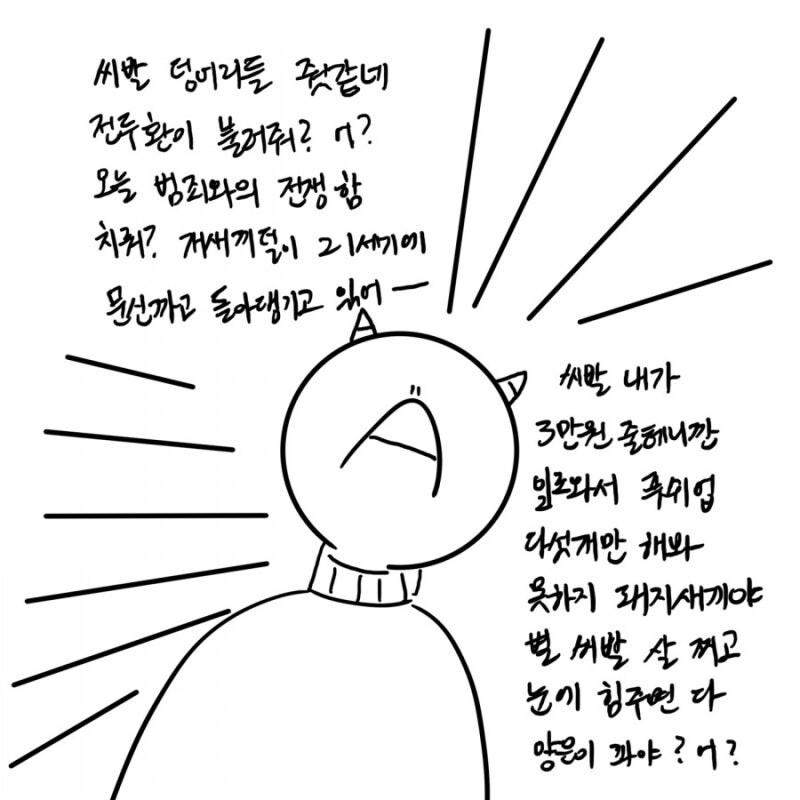 씨발 덩어리들 줫같네
전두환이 불러줘? 어?
오늘 범죄와의 전쟁 함
치뤄? 저새끼덜이 21세기에
문신까고 돌아댕기고 있어 —
A
씨발 내가
3만원 줄테니깐
일로와서 푸쉬업
다섯개만 해봐
못하지 돼지새끼야
별 씨발 살 쪄고
눈에 힘주면 다
양은이 파야? 어?